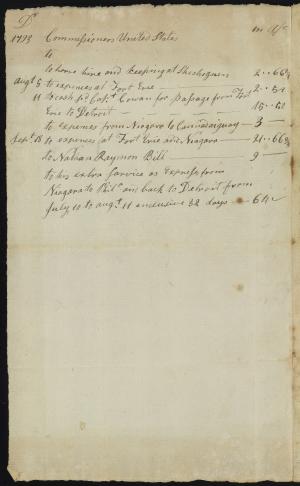 Dr in a/c
1793 Commissioners United States
to
to horse hire and keeping at 2..66⅔
augt 5 to expences at Fort Erie 2..
11 to cash pd Capt Cowan for passage from Fort
Erie to Detroit 15..50
to expences from Niagara to Cannadaiguay 3
Sept 18 to expences at Fort Erie and Niagara 21..66⅔
to Nathan Raymon Bill 9
to his extra Service as Express from
Niagara to and back to Detroit from
July 10 to augt 11 32 days 64